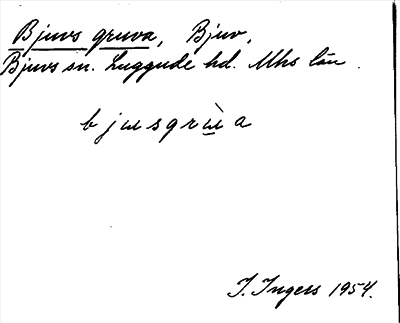 Bjuvs gruva, Bjuv,
Bjuvs sn. Luggude hd. Mhs län.
bjɯsgrɯ̀a
I. Ingers 1954.